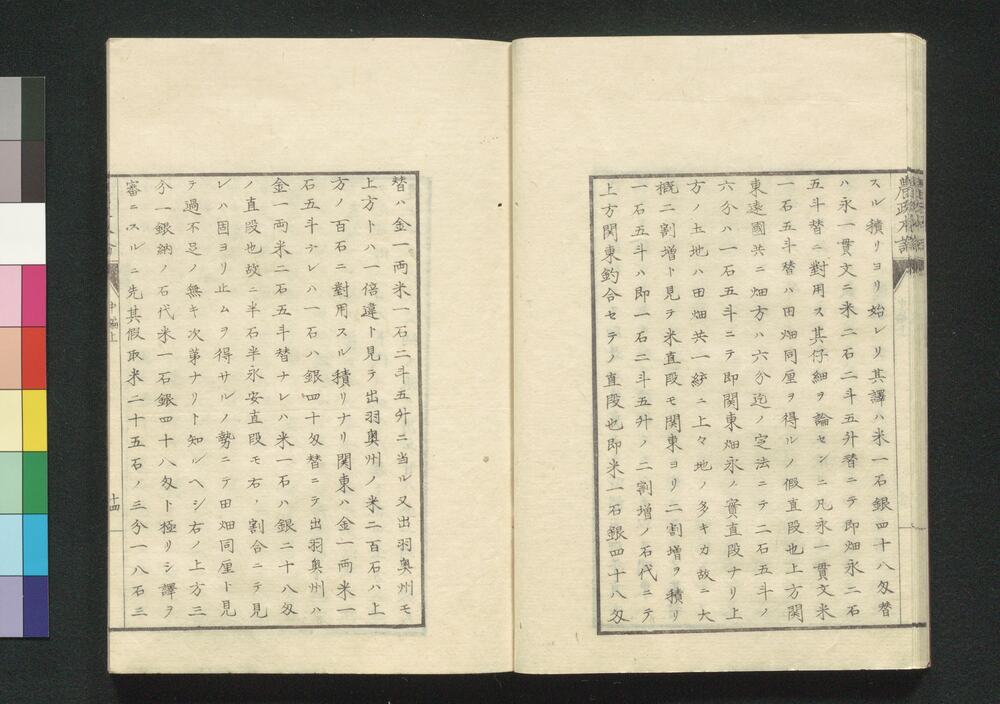 農政本論
スル積リヨリ始レリ其譯ハ米一石銀四十八匁替
ハ永一貫文ニ米二石二斗五升替ニテ即畑永二石
五斗替ニ對用ス其仔細ヲ論センニ凡永一貫文米
一石五斗替ハ田畑同厘ヲ得ルノ假直段也上方関
東遠國共ニ畑方ハ六分迄ノ定法ニテ二石五斗ノ
六分ハ一石五斗ニテ即関東畑永ノ實直段ナリ上
方ノ土地ハ田畑共一統ニ上々地ノ多キカ故ニ大
概二割増ト見テ米直段モ関東ヨリ二割増ヲ積リ
一石五斗ハ即一石二斗五升ノ二割増ノ石代ニテ
上方関東釣合セテノ直段也即米一石銀四十八匁
替ハ金一両米一石二斗五升ニ当ル又出羽奥州モ
上方トハ一倍違ト見テ出羽奥州ノ米二百石ハ上
方ノ百石ニ對用スル積リナリ関東ハ金一両米一
石五斗テレハ一石ハ銀四十匁替ニテ出羽奥州ハ
金一両米二石五斗替ナレハ米一石ハ銀二十八匁
ノ直段也故ニ半石半永安直段モ右ノ割合ニテ見
レハ固ヨリ止ムヲ得サルノ勢ニテ田畑同厘ト見
テ過不足ノ無キ次第ナリト知ルヘシ右ノ上方三
分一銀納ノ石代米一石銀四十八匁ト極リシ譯ヲ
審ニスルニ先其假取米二十五石ノ三分一八石三
中編上
十四